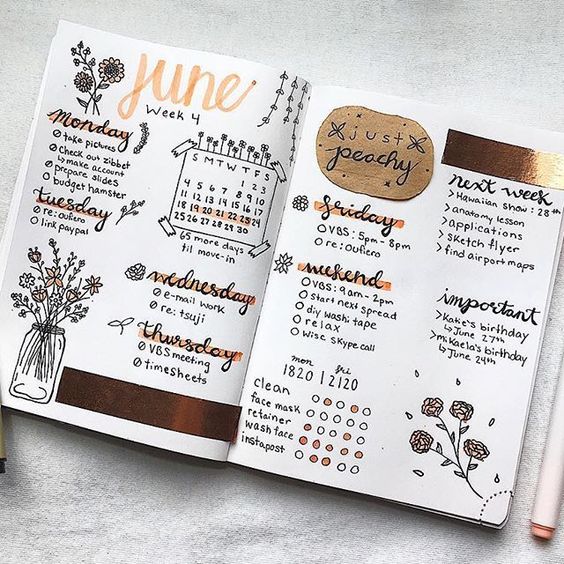 June
Week 4
monday
take pictures
check out zibbet
↳ make account
prepare slides
budget hamster
tuesday
re: oufiero
link paypal
S M T W T F S
1 2 3
4 5 6 7 8 9 10
11 12 13 14 15 16 17
18 19 20 21 22 23 24
25 26 27 28 29 30
65 more days
til move-in
wednesday
e-mail work
re: tsuji
thursday
VBS meeting
timesheets
just
peachy
friday
VBS: 5pm - 8pm
re: oufiero
weekend
VBS: 9am - 2pm
start next spread
diy washi tape
relax
wise skype call
mon fri
clean
face mask
retainer
wash face
instapost
next week
> Hawaiian show: 28th
> anatomy lesson
> applications
> sketch flyer
> find airport maps
important
> Kate's birthday
↳ June 27th
> mikaela's birthday
↳ June 24th